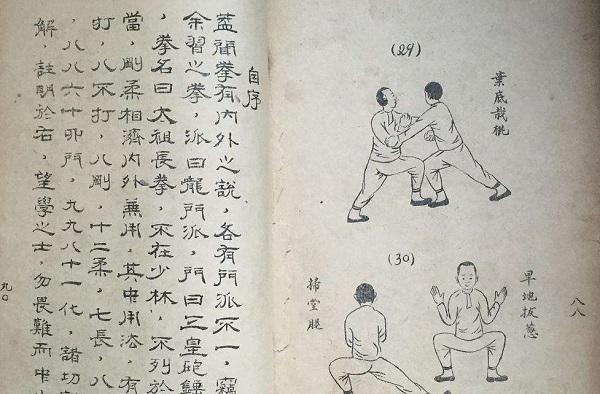 八八
(29)
葉底栽桃
(30)
旱地拔葱
掃堂腿
自序
蓋聞拳有內外之說,各有門派不一,竊
余習之拳,派曰龍門派,門曰三皇砲錘
,拳名曰太祖長拳,不在少林,不列於
當,剛柔相濟內外兼用,其中用法,有
打,八不打,八剛,十二柔,七長,八
,八八六十四門,九九八十一化,諸切
解,註明於右,望學之士,勿畏難而中
九〇